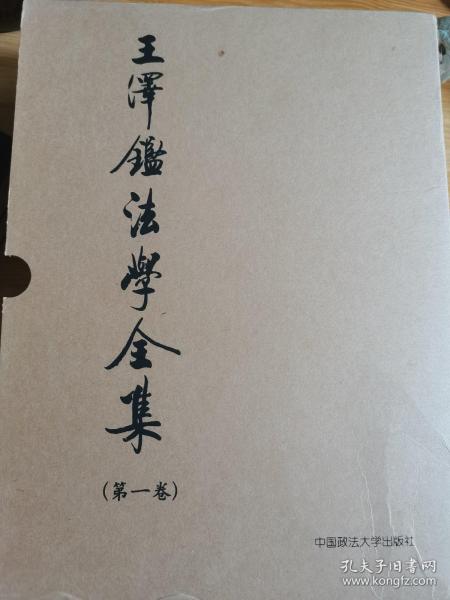 王澤鑑法學全集
(第一卷)
中国政法大学出版社
孔夫子旧书网
www.kongfz.com